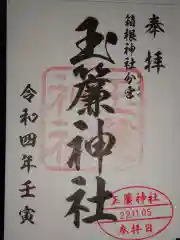 奉拝
箱根神社分霊
玉簾神社
令和四年壬寅
玉簾神社
22.11.05
参拝日